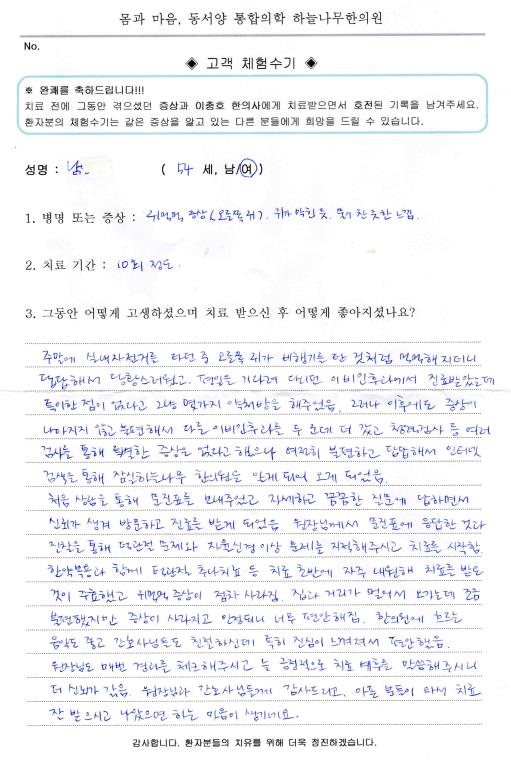 몸과 마음, 동서양 통합의학 하늘나무한의원
No.
◈ 고객 체험수기 ◈
※ 완쾌를 축하드립니다!!!
치료 전에 그동안 겪으셨던 증상과 이충호 한의사에게 치료받으면서 호전된 기록을 남겨주세요.
환자분의 체험수기는 같은 증상을 앓고 있는 다른 분들에게 희망을 드릴 수 있습니다.
성명 : 남 ( 54 세, 남/여 )
1. 병명 또는 증상 : 귀먹먹 증상(오른쪽 귀). 귀가 막힌 듯. 물이 찬 듯한 느낌.
2. 치료 기간 : 10회 정도.
3. 그동안 어떻게 고생하셨으며 치료 받으신 후 어떻게 좋아지셨나요?
주말에 실내자전거를 타던 중 오른쪽 귀가 비행기를 탄 것처럼 먹먹해지더니
답답해서 당황스러웠고. 평일을 기다려 다니던 이비인후과에서 진료받았는데
특이한 점이 없다고 그냥 몇가지 약처방을 해주었음. 그러나 이후에도 증상이
나아지지 않고 불편해서 다른 이비인후과를 두 군데 더 갔고 청력검사 등 여러
검사를 통해 특별한 증상은 없다고 했으나 여전히 불편하고 답답해서 인터넷
검색을 통해 잠실하늘나무 한의원을 알게 되어 오게 되었음.
처음 상담을 통해 문진표를 보내주었고 자세하고 꼼꼼한 질문에 답하면서
신뢰가 생겨 방문하고 진료를 받게 되었음. 원장님께서 문진표에 응답한 것과
진찰을 통해 턱관절 문제와 자율신경 이상 문제를 지적해주시고 치료를 시작함.
한약복용과 함께 턱관절 추나치료 등 치료 초반에 자주 내원해 치료를 받는
것이 주효했고 귀먹먹 증상이 점차 사라짐. 집과 거리가 멀어서 오가는데 조금
불편했지만 증상이 사라지고 안정되니 너무 편안해짐. 한의원에 흐르는
음악도 좋고 간호사님들도 친절하신데 특히 진심이 느껴져서 편안했음.
원장님도 매번 경과를 체크해주시고 늘 긍정적으로 치료 예후를 말씀해주시니
더 신뢰가 갔음. 원장님과 간호사님들께 감사드리고, 아픈 분들이 와서 치료
잘 받으시고 나았으면 하는 마음이 생기네요.
감사합니다. 환자분들의 치유를 위해 더욱 정진하겠습니다.